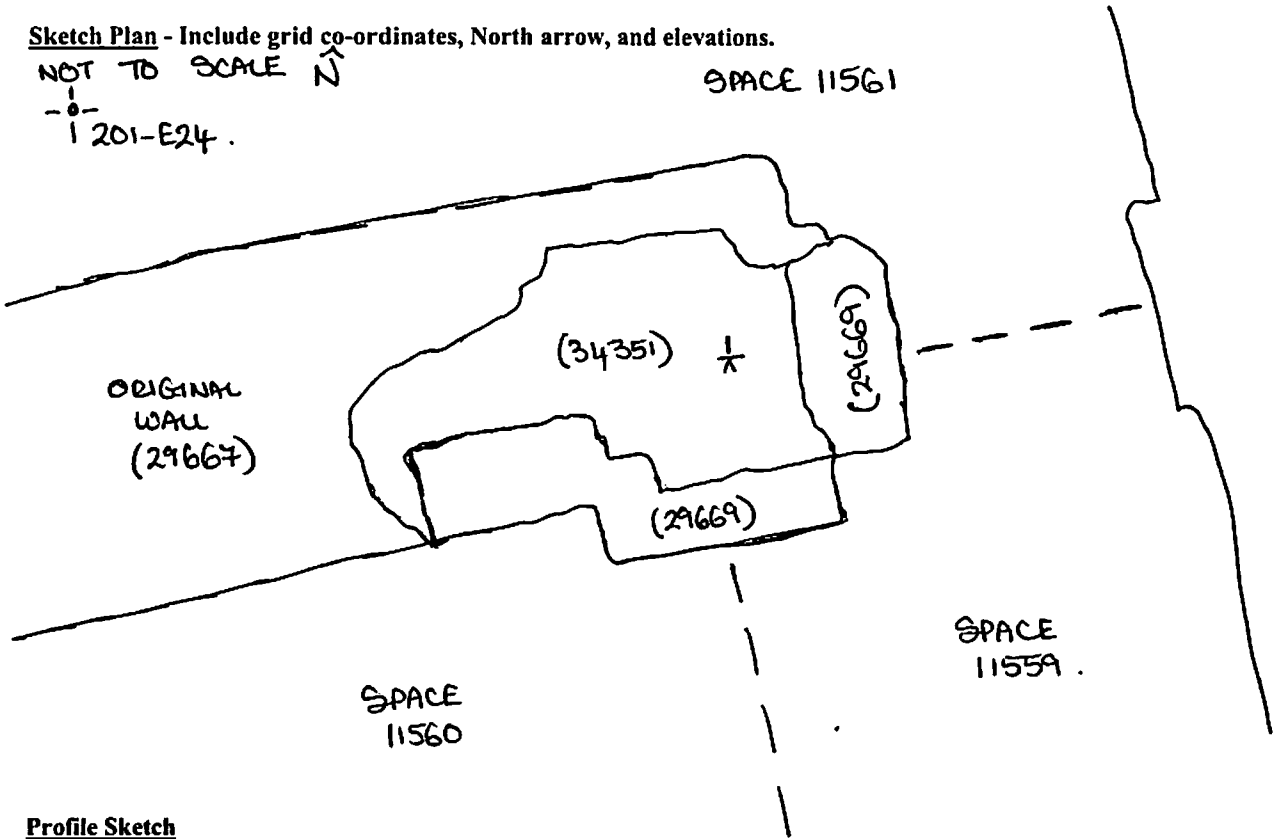 Sketch Plan - Include grid co-ordinates, North arrow, and elevations.
NOT TO SCALE N
201-E24.
SPACE 11561
(34351)
(29669)
ORIGINAL
WALL
(29667)
(29669)
SPACE
11559.
SPACE
11560
Profile Sketch